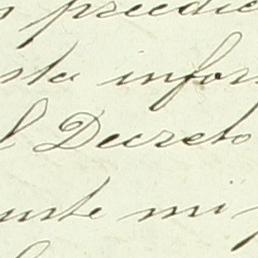 predic
sta infor
l Decreto
unte mi